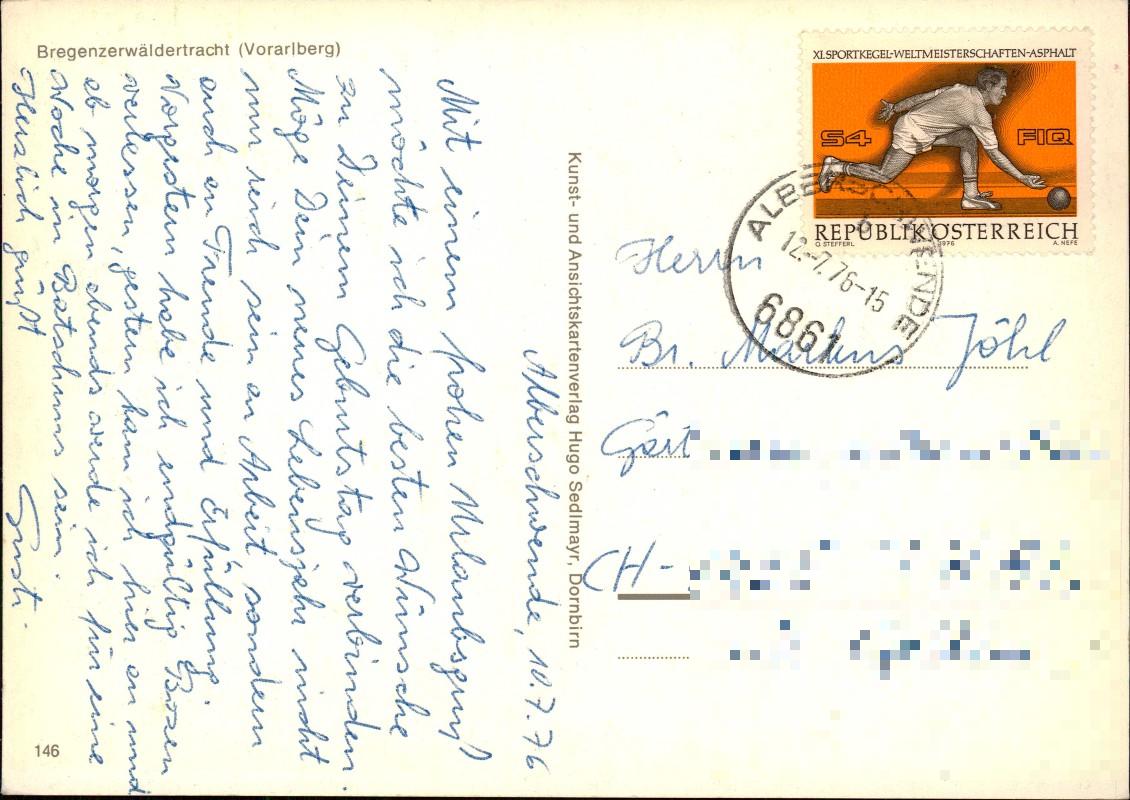 Bregenzerwäldertracht (Vorarlberg)
Alberschwende, 10.7.76
Mit einem frohen Urlaubsgruß
möchte ich die besten Wünsche
zu Deinem Geburtstag verbinden.
Möge Dein neues Lebensjahr nicht
nur reich sein an Arbeit sondern
auch an Freude und Erfüllung.
Vorgestern habe ich endgültig Bozen
verlassen, gestern kam ich hier an und
ab morgen abends werde ich für eine
Woche in Batschuns sein.
Herzlich grüßt
Gusti.
146
Kunst- und Ansichtskartenverlag Hugo Sedlmayr, Dornbirn
XI. SPORTKEGEL-WELTMEISTERSCHAFTEN-ASPHALT
S4 FIQ
REPUBLIK ÖSTERREICH
O. STEFFERL 1976 A. NEFE
ALBERSCHWENDE
b
12.-7.76-15
6861
Herrn
Br. Markus Jöhl
Gärt
CH-